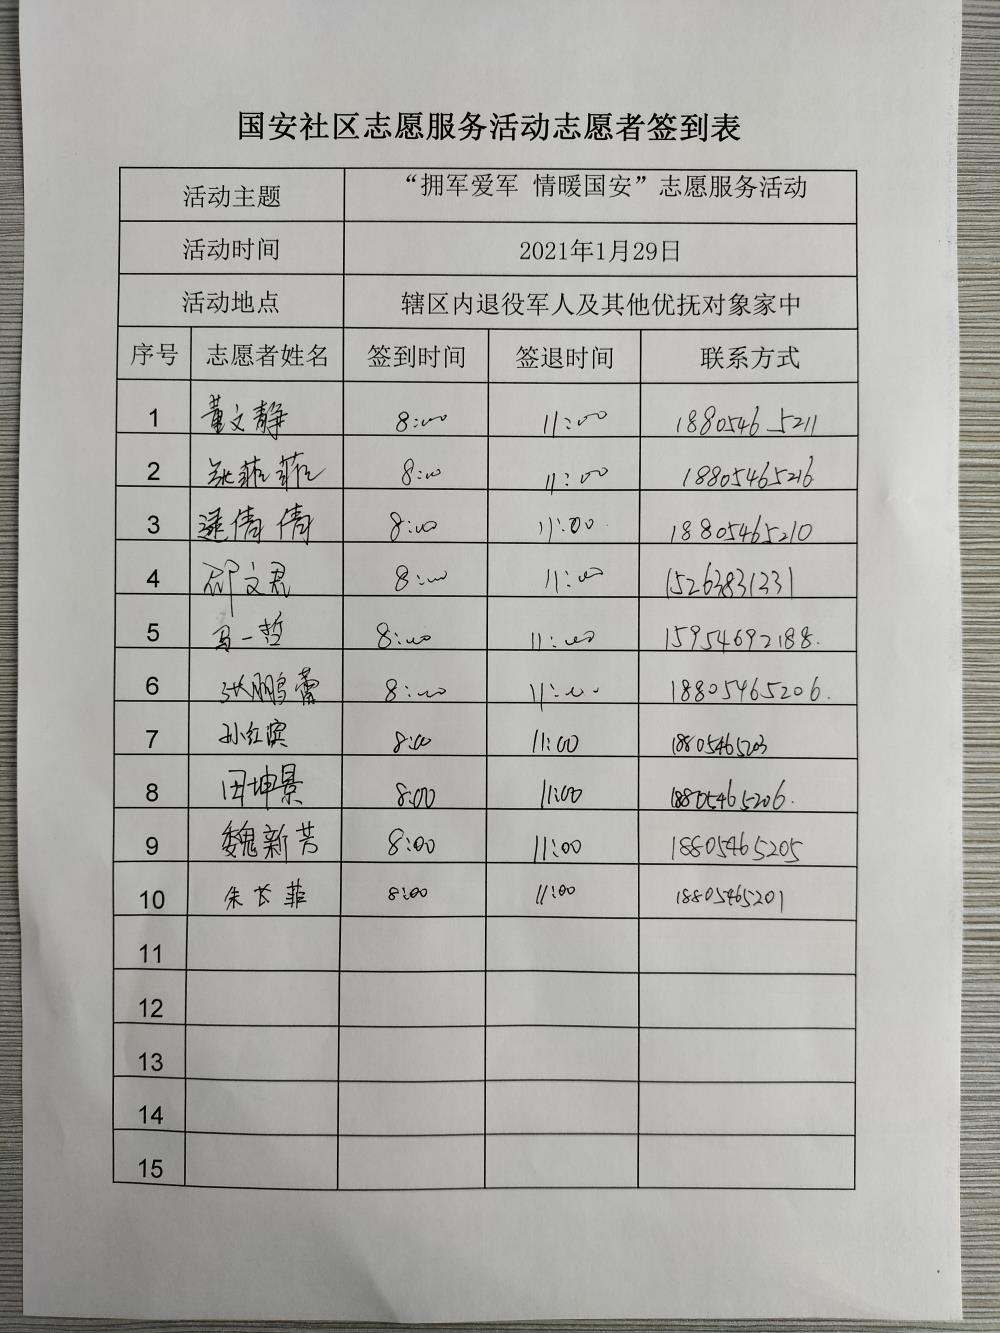 国安社区志愿服务活动志愿者签到表
活动主题 “拥军爱军 情暖国安”志愿服务活动
活动时间 2021年1月29日
活动地点 辖区内退役军人及其他优抚对象家中
序号 志愿者姓名 签到时间 签退时间 联系方式
1 董文静 8:00 11:00 18805465211
2 菲菲 8:00 11:00 18805465216
3 逯倩倩 8:00 11:00 18805465210
4 邵文君 8:00 11:00 15263831231
5 马一哲 8:00 11:00 15954692188.
6 洪鹏蕾 8:00 11:00 18805465206.
7 孙红滨 8:00 11:00 18805465203
8 田坤景 8:00 11:00 18805465206.
9 魏新芳 8:00 11:00 18805465205
10 朱长菲 8:00 11:00 18805465201
11
12
13
14
15